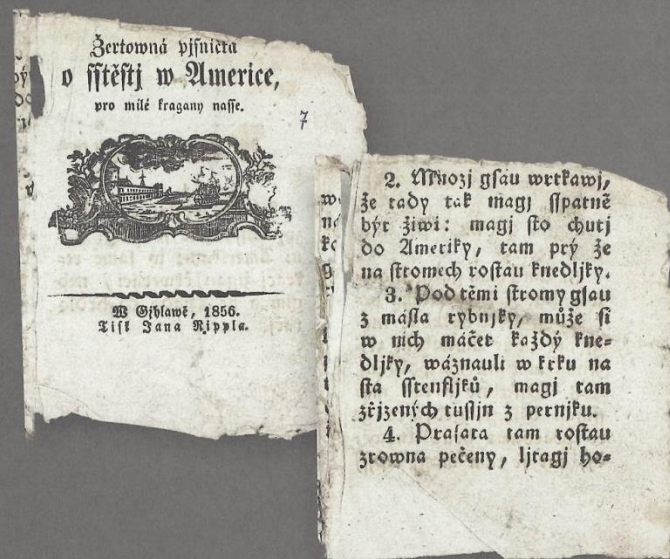 Žertowná pjſnička
o ſſtěſtj w Americe,
pro milé kragany naſſe.
7
W Gjhlawě, 1856.
Tiſk Jana Rippla.
2. Mnozj gſau wrtkawj,
že tady tak magj ſſpatně
být žiwi: magj ſto chutj
do Ameriky, tam prý že
na ſtromech roſtau knedljky.
3. Pod těmi ſtromy gſau
z máſla rybnjky, může ſi
w nich máčet každý kne-
dljky, wáznauli w krku na
ſta ſſtenfljků, magj tam
zřjzených tuſijn z pernjku.
4. Praſata tam roſtau
zrowna pečeny, ljtagj ho-